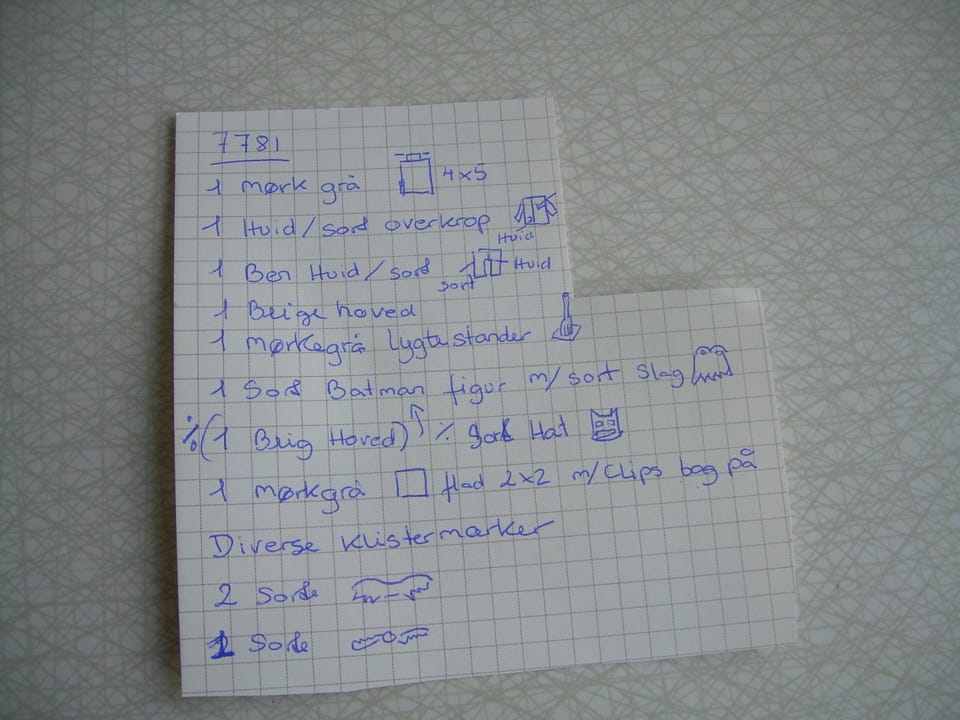 7781
1 mørk grå 4x5
1 Hvid/sort overkrop
Hvid
1 Ben Hvid/sort Hvid
sort
1 Beige hoved
1 mørkegrå lygtestander
1 Sort Batman figur m/sort slag
% (1 Beig Hoved) % Sort Hat
1 mørkgrå flad 2x2 m/Clips bag på
Diverse klistermærker
2 Sorte
1 Sorte